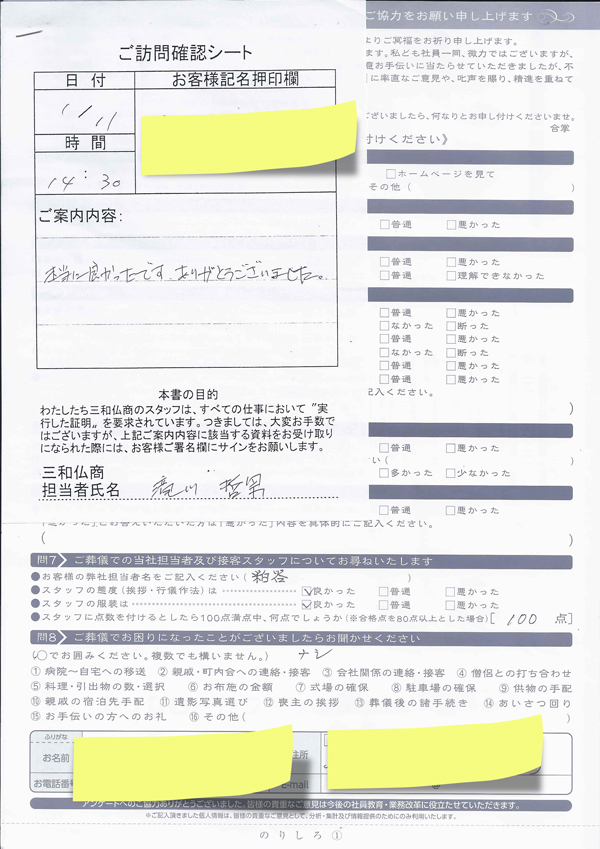 ご協力をお願い申し上げます
ご訪問確認シート
日付
お客様記名押印欄
11/11
時間
14:30
ご案内内容:
本当に良かったです ありがとうございました。
本書の目的
わたしたち三和仏商のスタッフは、すべての仕事において“実
行した証明”を要求されています。つきましては、大変お手数で
はございますが、上記ご案内内容に該当する資料をお受け取り
になられた際には、お客様ご署名欄にサインをお願いします。
三和仏商
担当者氏名 滝川 哲男
よりご冥福をお祈り申し上げます。
ます。私ども社員一同、微力ではございますが、
意お手伝いに当たらせていただきましたが、不
に率直なご意見や、叱声を賜り、精進を重ねて
ございましたら、何なりとお申し付けくださいませ。
合掌
付けください》
□ホームページを見て
その他( )
□普通 □悪かった
□普通 □悪かった
□普通 □理解できなかった
□普通 □悪かった
□なかった □断った
□普通 □悪かった
□なかった □断った
□普通 □悪かった
□普通 □悪かった
記入ください。
)
□普通 □悪かった
い( )
□多かった □少なかった
□普通 □悪かった
「悪かった」とお答えいただいた方は「悪かった」内容を具体的にご記入ください。
( )
問7 ご葬儀での当社担当者及び接客スタッフについてお尋ねいたします
●お客様の弊社担当者名をご記入ください( 粕谷 )
●スタッフの態度(挨拶・行儀作法)は ☑良かった □普通 □悪かった
●スタッフの服装は ☑良かった □普通 □悪かった
●スタッフに点数を付けるとしたら100点満点中、何点でしょうか(※合格点を80点以上とした場合)[ 100 点]
問8 ご葬儀でお困りになったことがございましたらお聞かせください
(○でお囲みください。複数でも構いません。) ナシ
①病院〜自宅への移送 ②親戚・町内会への連絡・接客 ③会社関係の連絡・接客 ④僧侶との打ち合わせ
⑤料理・引出物の数・選択 ⑥お布施の金額 ⑦式場の確保 ⑧駐車場の確保 ⑨供物の手配
⑩親戚の宿泊先手配 ⑪遺影写真選び ⑫喪主の挨拶 ⑬葬儀後の諸手続き ⑭あいさつ回り
⑮お手伝いの方へのお礼 ⑯その他( )
ふりがな
お名前
住所
お電話番号
E-mail
アンケートへのご協力ありがとうございました。皆様の貴重なご意見は今後の社員教育・業務改革に役立たせていただきます。
※ご記入頂きました個人情報は、皆様の貴重なご意見として、分析・集計及び情報提供のためにのみ利用いたします。
のりしろ①